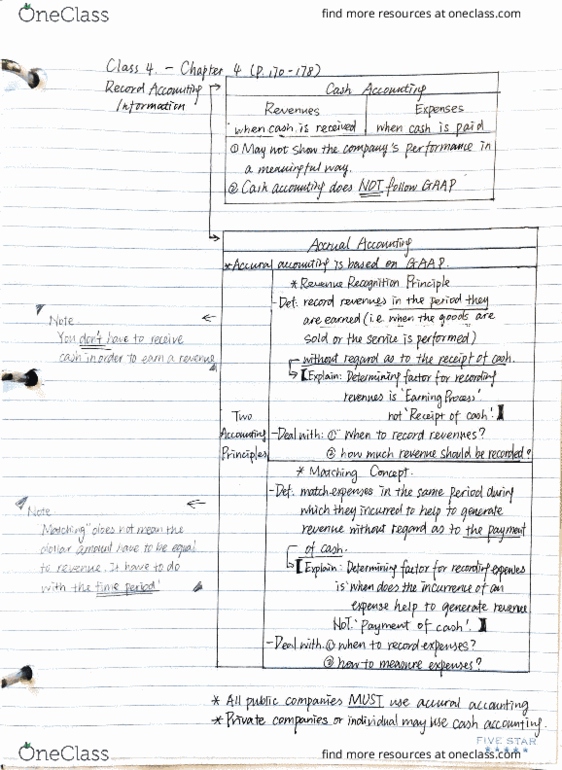 OneClass
find more resources at oneclass.com
Class 4. - Chapter 4 (P.170-178)
Record Accounting
Information
Cash Accounting
Revenues
Expenses
when cash is received
when cash is paid
① May not show the company's performance in
a meaningful way.
② Cash accounting does NOT follow GAAP
Accrual Accounting
* Accural accounting is based on GAAP.
* Revenue Recognition Principle
- Def: record revenues in the period they
are earned (i.e. when the goods are
sold or the service is performed)
without regard as to the receipt of cash.
[Explain: Determining factor for recording
revenues is 'Earning Process'
not 'Receipt of cash'.]
- Deal with: ① when to record revenues?
② how much revenue should be recorded?
Note
You don't have to receive
cash in order to earn a revenue
Two
Accounting
Principles
* Matching Concept.
- Def. match expenses in the same period during
which they incurred to help to generate
revenue without regard as to the payment
of cash.
[Explain: Determining factor for recording expenses
is 'when does the incurrence of an
expense help to generate revenue
Not 'Payment of cash'.]
- Deal with ① when to record expenses?
② how to measure expenses?
Note
"Matching" does not mean the
dollar amount have to be equal
to revenue. It have to do
with the time period'
* All public companies MUST use accural accounting
* Private companies or individual may use cash accounting.
FIVE STAR
OneClass
find more resources at oneclass.com